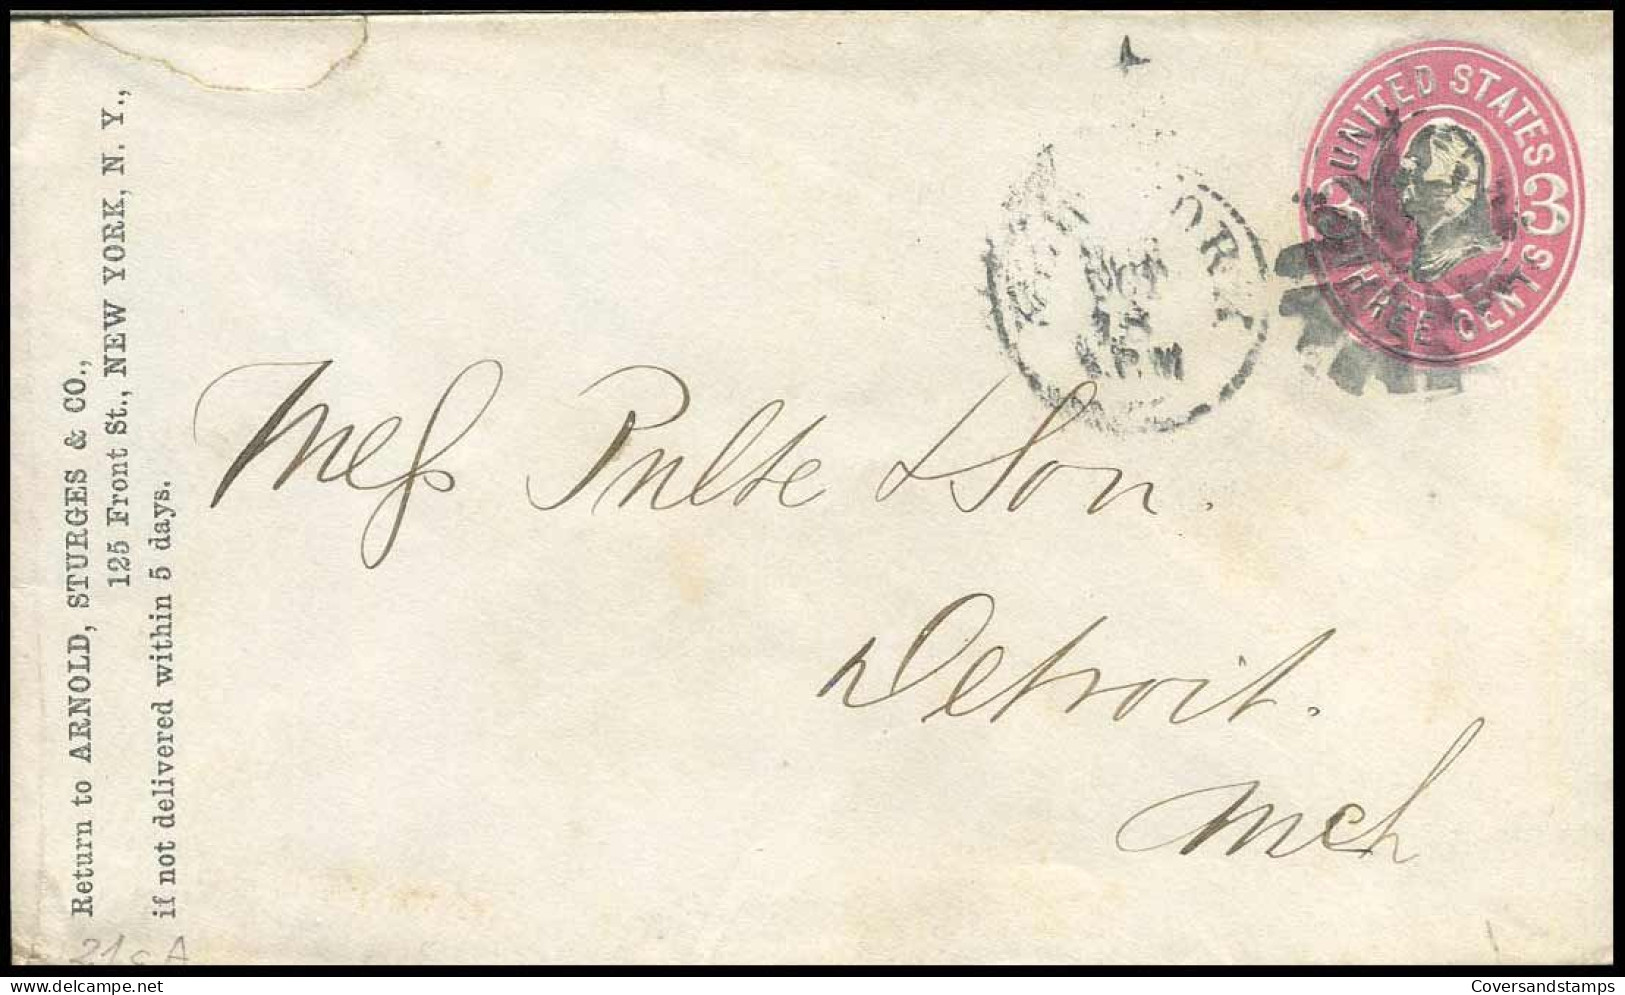 Return to ARNOLD, STURGES & CO.,
125 Front St., NEW YORK, N. Y.,
if not delivered within 5 days.
UNITED STATES
3 3
THREE CENTS
NEW YORK
OCT
P.M
Mess Pulte & Son.
Detroit.
Mch
Coversandstamps